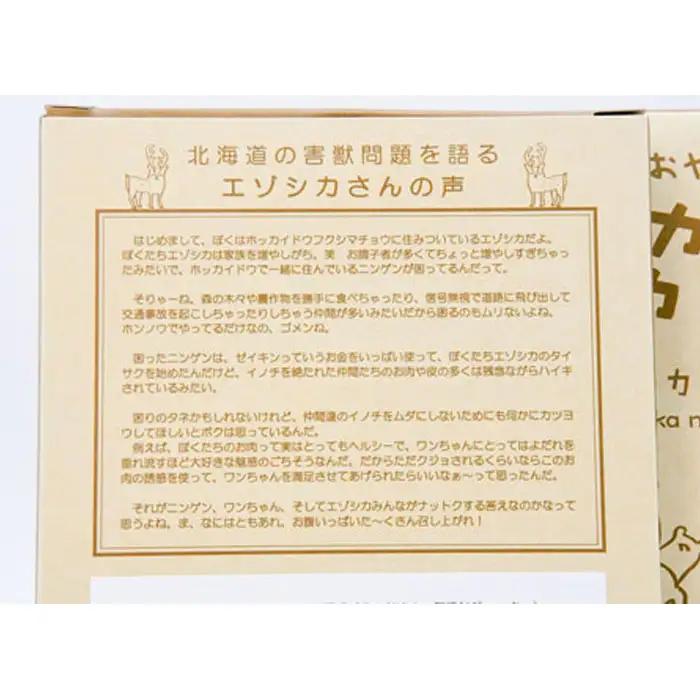 北海道の害獣問題を語る
エゾシカさんの声
はじめまして、ぼくはホッカイドウフクシマチョウに住みついているエゾシカだよ。
ぼくたちエゾシカは家族を増やしがち。笑　お調子者が多くてちょっと増やしすぎちゃっ
たみたいで、ホッカイドウで一緒に住んでいるニンゲンが困ってるんだって。
そりゃーね、森の木々や農作物を勝手に食べちゃったり、信号無視で道路に飛び出して
交通事故を起こしちゃったりしちゃう仲間が多いみたいだから困るのもムリないよね。
ホンノウでやってるだけなの、ゴメンね。
困ったニンゲンは、ゼイキンっていうお金をいっぱい使って、ぼくたちエゾシカのタイ
サクを始めたんだけど、イノチを絶たれた仲間たちのお肉や皮の多くは残念ながらハイキ
されているみたい。
困りのタネかもしれないけれど、仲間達のイノチをムダにしないためにも何かにカツヨ
ウしてほしいとボクは思っているんだ。
例えば、ぼくたちのお肉って実はとってもヘルシーで、ワンちゃんにとってはよだれを
垂れ流すほど大好きな魅惑のごちそうなんだ。だからただクジョされるくらいならこのお
肉の誘惑を使って、ワンちゃんを満足させてあげられたらいいなぁ~って思ったんだ。
それがニンゲン、ワンちゃん、そしてエゾシカみんながナットクする答えなのかなって
思うよね。ま、なにはともあれ。お腹いっぱいた~くさん召し上がれ！
おや
カ
ka n